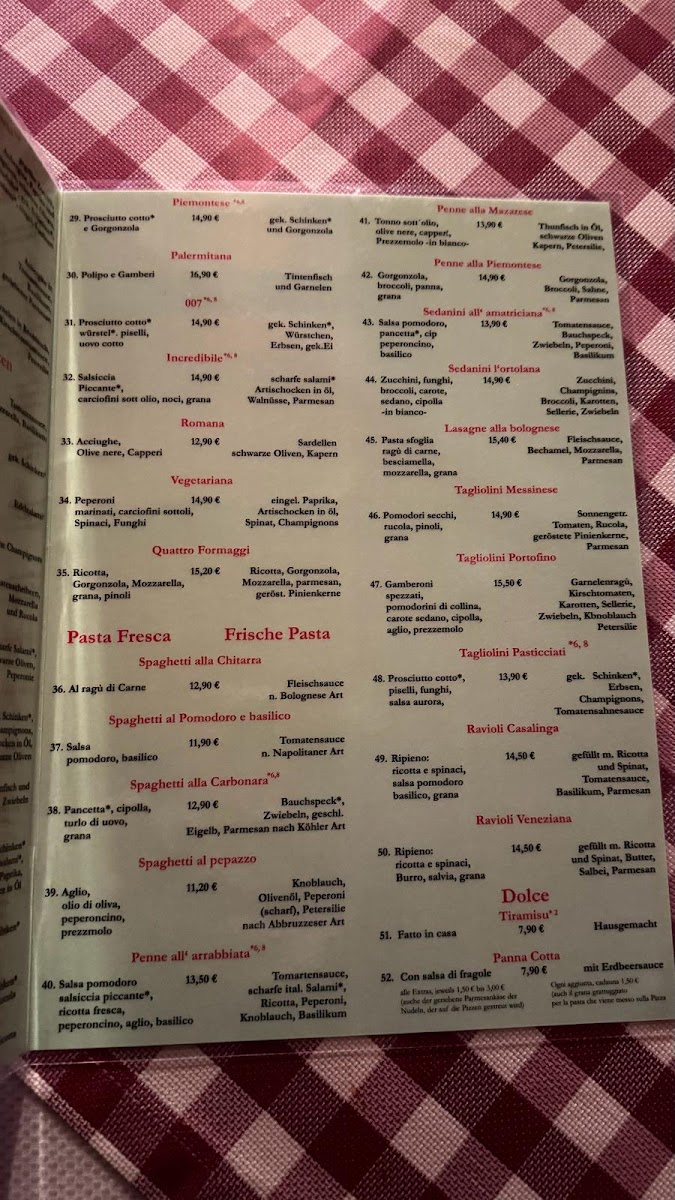 Piemontese *6,8
29. Prosciutto cotto* 14,90 € gek. Schinken*
e Gorgonzola und Gorgonzola
Palermitana
30. Polipo e Gamberi 16,90 € Tintenfisch
und Garnelen
007 *6, 8
31. Prosciutto cotto* 14,90 € gek. Schinken*,
würstel*. piselli, Würstchen,
uovo cotto Erbsen, gek.Ei
Incredibile *6, 8
32. Salsiccia 14,90 € scharfe salami*
Piccante*, Artischocken in öl,
carciofini sott olio, noci, grana Walnüsse, Parmesan
Romana
33. Acciughe, 12,90 € Sardellen
Olive nere, Capperi schwarze Oliven, Kapern
Vegetariana
34. Peperoni 14,90 € eingel. Paprika,
marinati, carciofini sottoli, Artischocken in öl,
Spinaci, Funghi Spinat, Champignons
Quattro Formaggi
35. Ricotta, 15,20 € Ricotta, Gorgonzola,
Gorgonzola, Mozzarella, Mozzarella, parmesan,
grana, pinoli geröst. Pinienkerne
Pasta Fresca Frische Pasta
Spaghetti alla Chitarra
36. Al ragù di Carne 12,90 € Fleischsauce
n. Bolognese Art
Spaghetti al Pomodoro e basilico
37. Salsa 11,90 € Tomatensauce
pomodoro, basilico n. Napolitaner Art
Spaghetti alla Carbonara *6,8
38. Pancetta*, cipolla, 12,90 € Bauchspeck*,
turlo di uovo, Zwiebeln, geschl.
grana Eigelb, Parmesan nach Köhler Art
Spaghetti al pepazzo
39. Aglio, 11,20 € Knoblauch,
olio di oliva, Olivenöl, Peperoni
peperoncino, (scharf), Petersilie
prezzmolo nach Abbruzzeser Art
Penne all' arrabbiata *6, 8
40. Salsa pomodoro 13,50 € Tomartensauce,
salsiccia piccante*, scharfe ital. Salami*,
ricotta fresca, Ricotta, Peperoni,
peperoncino, aglio, basilico Knoblauch, Basilikum
Penne alla Mazarese
41. Tonno sott´olio, 13,90 € Thunfisch in Öl,
olive nere, capperi, schwarze Oliven
Prezzemolo -in bianco- Kapern, Petersilie,
Penne alla Piemontese
42. Gorgonzola, 14,90 € Gorgonzola,
broccoli, panna, Broccoli, Sahne,
grana Parmesan
Sedanini all' amatriciana *6, 8
43. Salsa pomodoro, 13,90 € Tomatensauce,
pancetta*, cip Bauchspeck,
peperoncino, Zwiebeln, Peperoni,
basilico Basilikum
Sedanini l'ortolana
44. Zucchini, funghi, 14,90 € Zucchini,
broccoli, carote, Champignins,
sedano, cipolla Broccoli, Karotten,
-in bianco- Sellerie, Zwiebeln
Lasagne alla bolognese
45. Pasta sfoglia 15,40 € Fleischsauce,
ragù di carne, Bechamel, Mozzarella,
besciamella, Parmesan
mozzarella, grana
Tagliolini Messinese
46. Pomodori secchi, 14,90 € Sonnengetr.
rucola, pinoli, Tomaten, Rucola,
grana geröstete Pinienkerne,
Parmesan
Tagliolini Portofino
47. Gamberoni 15,50 € Garnelenragù,
spezzati, Kirschtomaten,
pomodorini di collina, Karotten, Sellerie,
carote sedano, cipolla, Zwiebeln, Kbnoblauch
aglio, prezzemolo Petersilie
Tagliolini Pasticciati *6, 8
48. Prosciutto cotto*, 13,90 € gek. Schinken*,
piselli, funghi, Erbsen,
salsa aurora, Champignons,
Tomatensahnesauce
Ravioli Casalinga
49. Ripieno: 14,50 € gefüllt m. Ricotta
ricotta e spinaci, und Spinat,
salsa pomodoro Tomatensauce,
basilico, grana Basilikum, Parmesan
Ravioli Veneziana
50. Ripieno: 14,50 € gefüllt m. Ricotta
ricotta e spinaci, und Spinat, Butter,
Burro, salvia, grana Salbei, Parmesan
Dolce
Tiramisu* 2
51. Fatto in casa 7,90 € Hausgemacht
Panna Cotta
52. Con salsa di fragole 7,90 € mit Erdbeersauce
alle Extras, jeweils 1,50 € bis 3,00 €
(auche der geriebene Parmesankäse der
Nudeln, der auf die Pizzen gestreut wird)
Ogni aggiunta, cadauna 1,50 €
(auch il grana grattuggiato
per la pasta che viene messo sulla Pizza